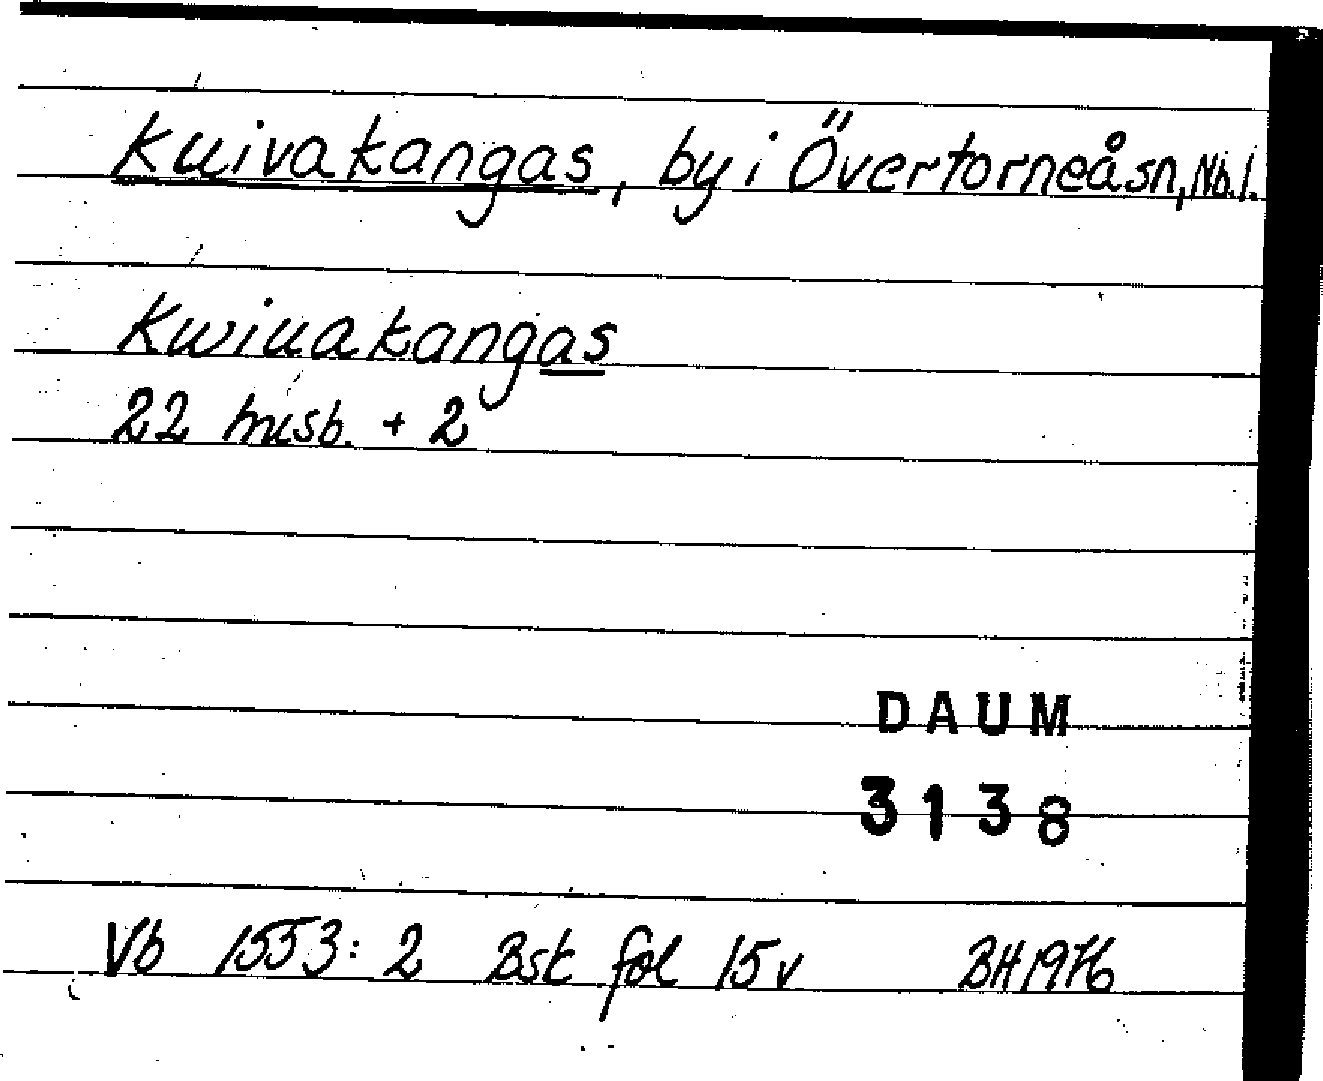 Kuivakangas, by i Övertorneå sn, Nb.l.
Kwiuakangas
22 husb. + 2
DAUM
3138
Vb 1553:2 Bsk fol 15v BH 1976